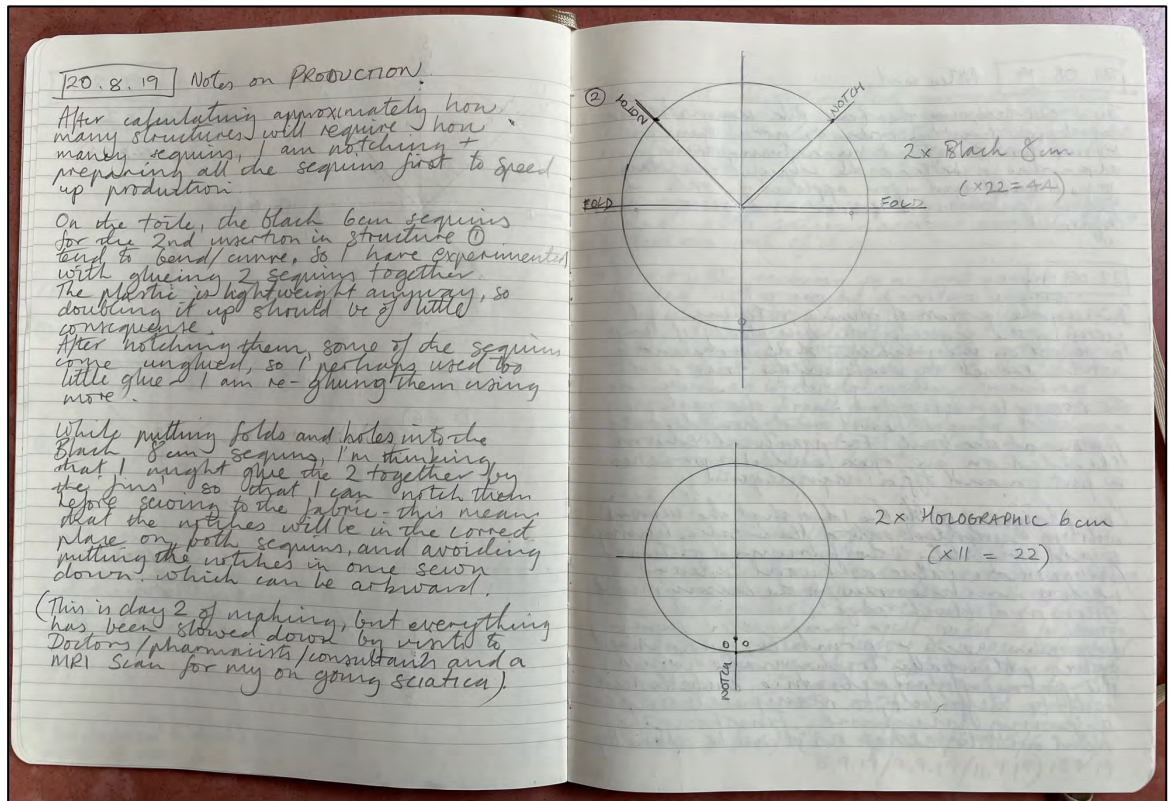 20.8.19 Notes on PRODUCTION.
After calculating approximately how
many structures will require how
many sequins, I am notching +
preparing all the sequins first to speed
up production.
On the toile, the black 6cm sequins
for the 2nd insertion in structure ①
tend to bend/curve, so I have experimented
with glueing 2 sequins together.
The plastic is lightweight anyway, so
doubling it up should be of little
consequense.
After notching them, some of the sequins
come unglued, so I perhaps used too
little glue – I am re-gluing them using
more.
While putting folds and holes into the
Black 8cm sequins, I'm thinking
that I might glue the 2 together by
the 'fins' so that I can notch them
before sewing to the fabric – this means
that the notches will be in the correct
place on both sequins, and avoiding
putting the notches in once sewn
down. which can be arkward.
(This is day 2 of making, but everything
has been slowed down by visits to
Doctors/pharmacists/consultants and a
MRI Scan for my on going sciatica).
②
NOTCH
NOTCH
2x Black 8cm
(x22=44)
FOLD
FOLD
2x HOLOGRAPHIC 6cm
(x11 = 22)
NOTCH